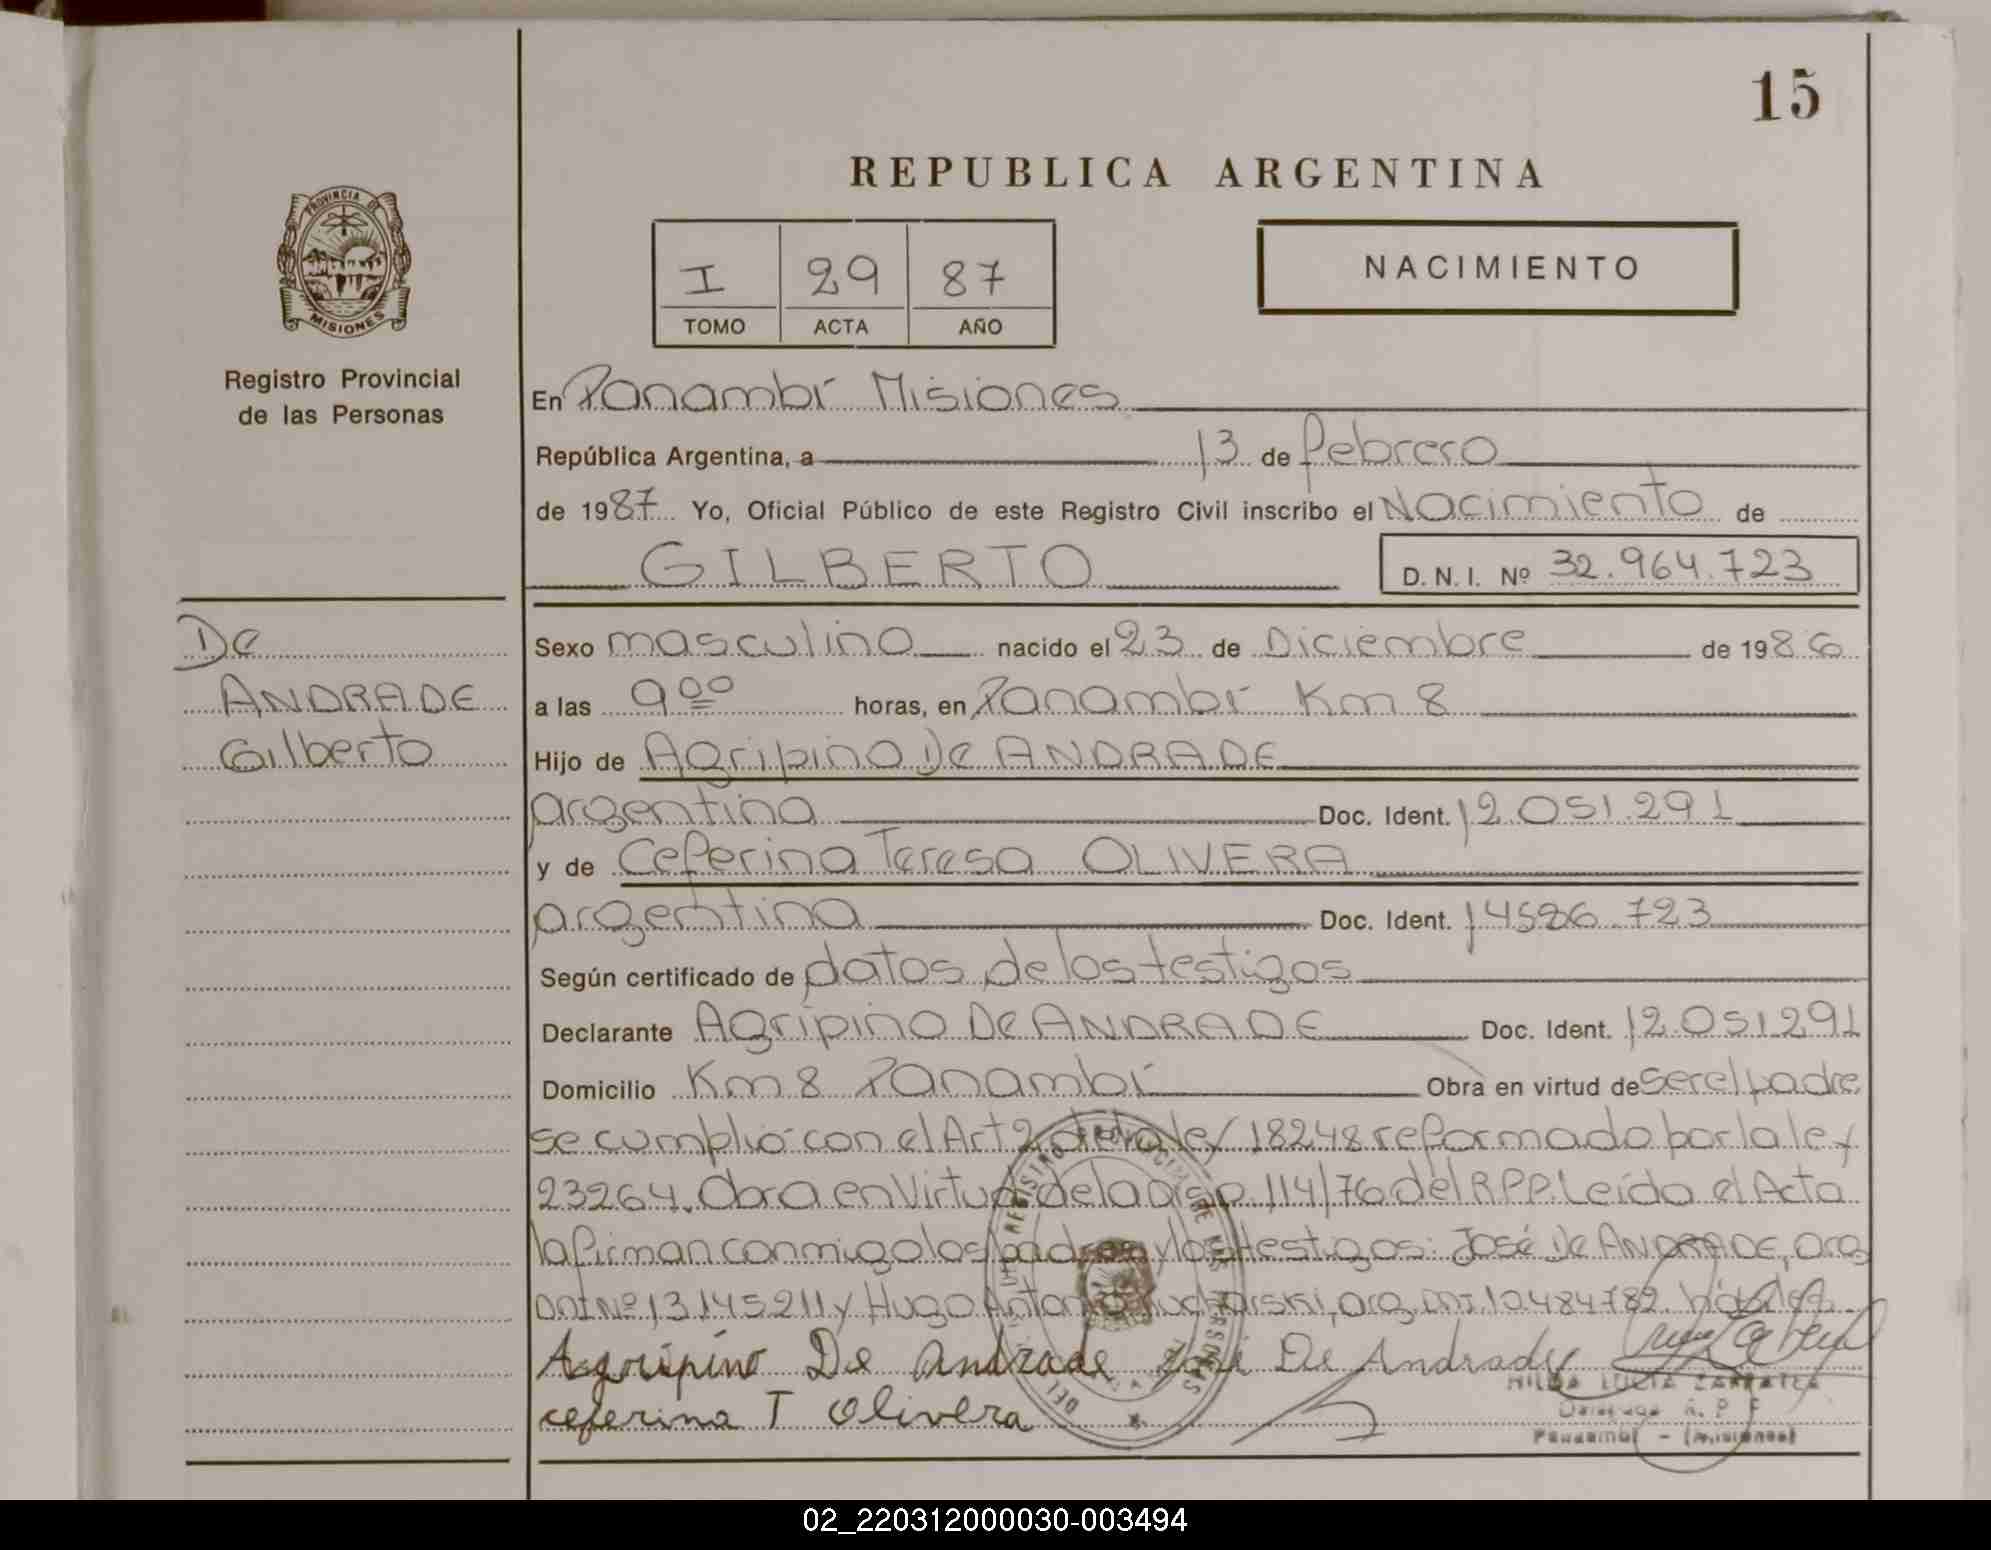 15
REPUBLICA ARGENTINA
PROVINCIA DE
MISIONES
I 29 87
TOMO ACTA AÑO
NACIMIENTO
Registro Provincial
de las Personas
En Panambí Misiones
República Argentina, a 13 de febrero
de 1987 Yo, Oficial Público de este Registro Civil inscribo el Nacimiento de
GILBERTO D. N. I. Nº 32.964.723
De
ANDRADE
Gilberto
Sexo masculino nacido el 23 de Diciembre de 1986
a las 9 00 horas, en Panambí Km 8
Hijo de Agripino De ANDRADE
argentina Doc. Ident. 12.051.291
y de Ceferina Teresa OLIVERA
argentina Doc. Ident. 14586.723
Según certificado de datos de los testigos
Declarante Agripino De ANDRADE Doc. Ident. 12.051291
Domicilio Km 8 Panambí Obra en virtud de ser el padre
se cumplió con el Art. 2 de la ley 18248 reformado por la ley
23264. Obra en Virtud de la Disp. 114/76 del R.P.P. Leído el Acta
la firman conmigo los padres y los testigos: José De ANDRADE, arg
DNI Nº 13.145.211 y Hugo Antonio arg. DNI 10.484.789
Agoripino De andrade José De Andrade
ceferina T Olivera
HILDA LUCIA
Panambí - (Misiones)
02_220312000030-003494